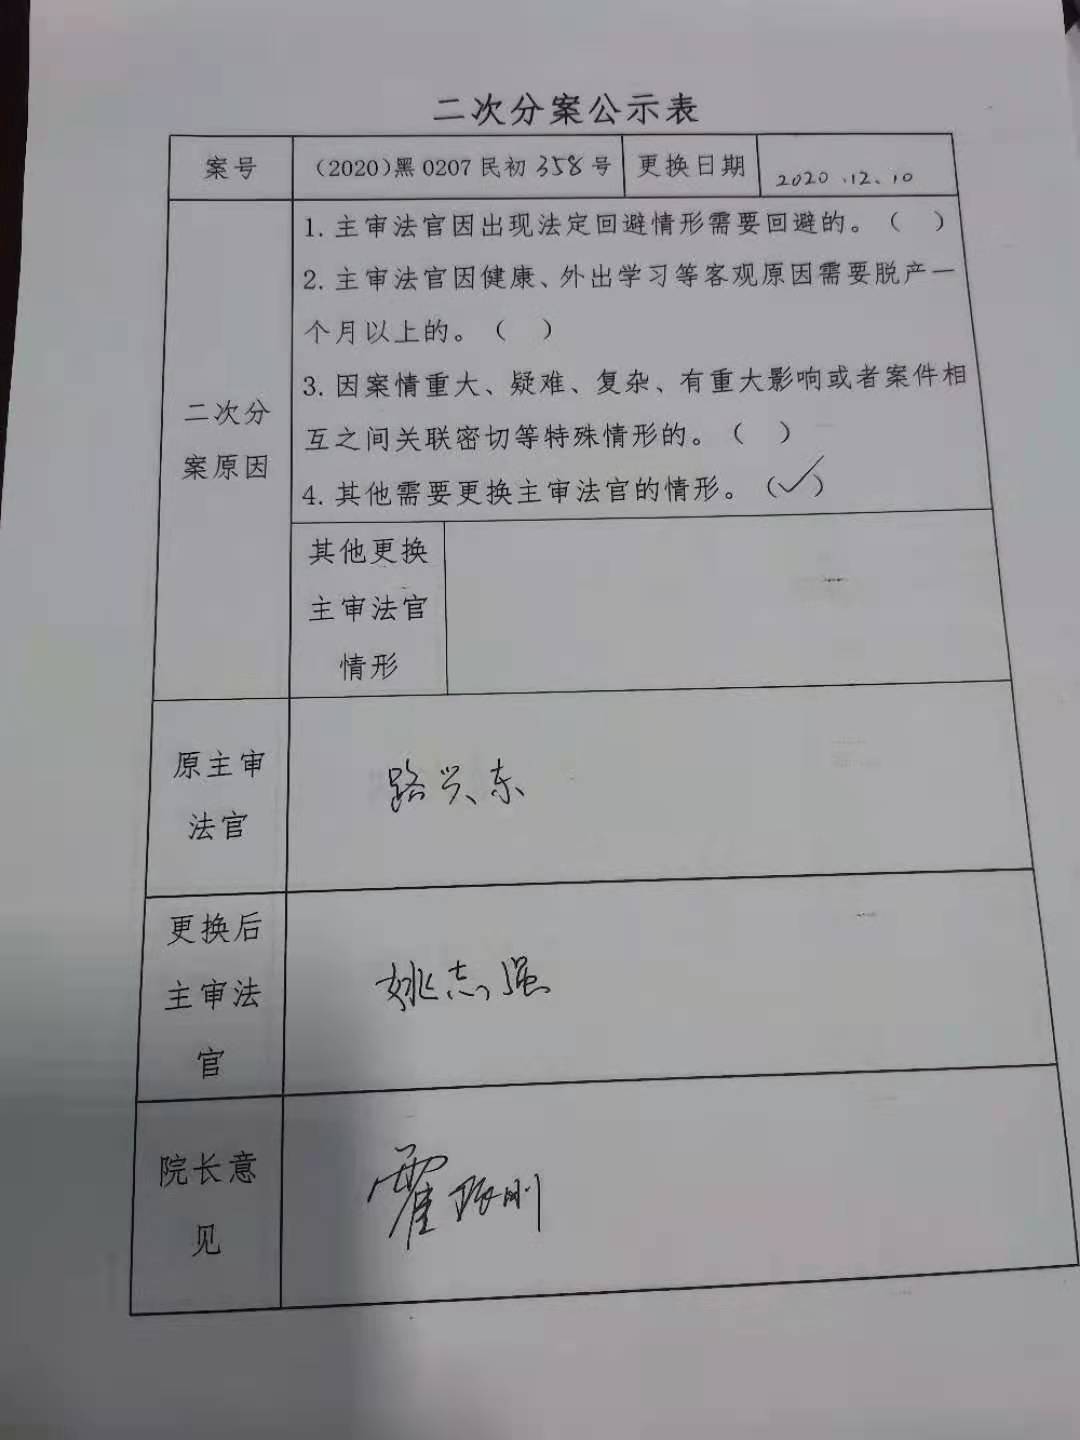 二次分案公示表
案号
(2020)黑0207民初358号
更换日期
2020.12.10
二次分
案原因
1. 主审法官因出现法定回避情形需要回避的。（ ）
2. 主审法官因健康、外出学习等客观原因需要脱产一
个月以上的。（ ）
3. 因案情重大、疑难、复杂、有重大影响或者案件相
互之间关联密切等特殊情形的。（ ）
4. 其他需要更换主审法官的情形。（✓）
其他更换
主审法官
情形
原主审
法官
路兴东
更换后
主审法
官
姚志强
院长意
见
霍 刚